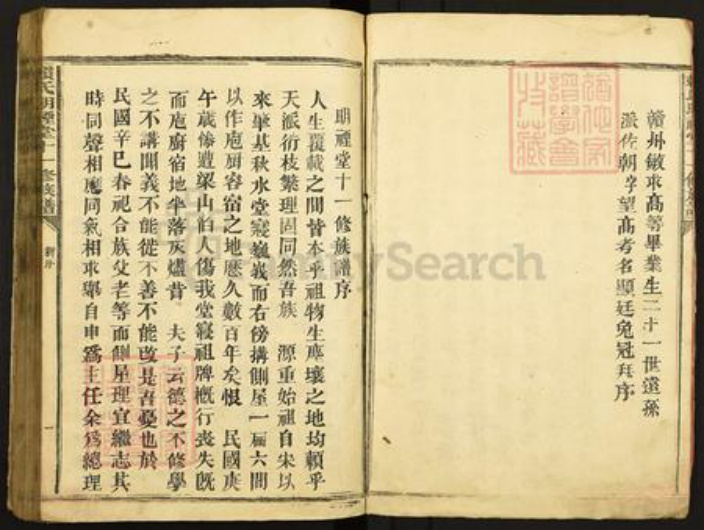 贛州敏求高等畢業生二十一世遠孫
派佐朝字望高考名顯廷免冠拜序
明禋堂十一修族譜序
人生覆載之間皆本乎祖物生厚壤之地均賴乎
天派衍枝繁理固同然吾族 源重始祖自宋以
來肇基秋水堂寢巍峩而右傍搆側屋一扇六間
以作庖厨容宿之地歷久數百年矣恨 民國庚
午歲慘遭梁山伯人傷我堂寢祖牌概行喪失既
而庖廚宿地半落灰燼昔 夫子云德之不修學
之不講聞義不能從不善不能改是吾憂也於
民國辛巳春祀合族父老等而側屋理宜繼志其
時同聲相應同氣相求舉自申為主任余為總理
氏明禋堂十一修族譜
新序
一
FamilySearch